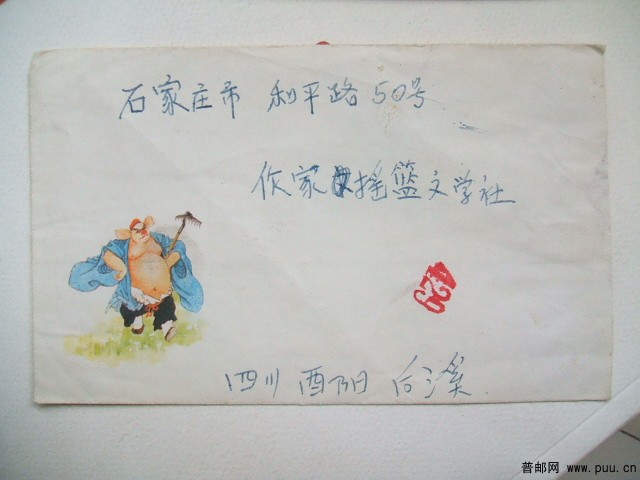 石家庄市 和平路 50号
作家摇篮文学社
四川 酉阳 后溪
普邮网 www.puu.cn